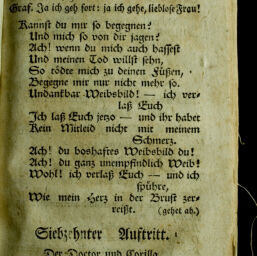 Graf. Ja ich geh fort: ja ich gehe, lieblose Frau!
Kannst du mir so begegnen?
Und mich so von dir jagen?
Ach! wenn du mich auch hassest
Und meinen Tod willst sehn,
So tödte mich zu deinen Füßen,
Begegne mir nur nicht mehr so.
Undankbar Weibsbild! — ich ver-
laß Euch
Ich laß Euch jetzo — und ihr habet
Kein Mitleid nicht mit meinem
Schmerz.
Ach! du boshaftes Weibsbild du!
Ach! du ganz unempfindlich Weib!
Wohl! ich verlaß Euch — und ich
spühre,
Wie mein Herz in der Brust zer-
reißt. (gehet ab.)
Siebzehnter Auftritt.
Der Doctor und Corilla